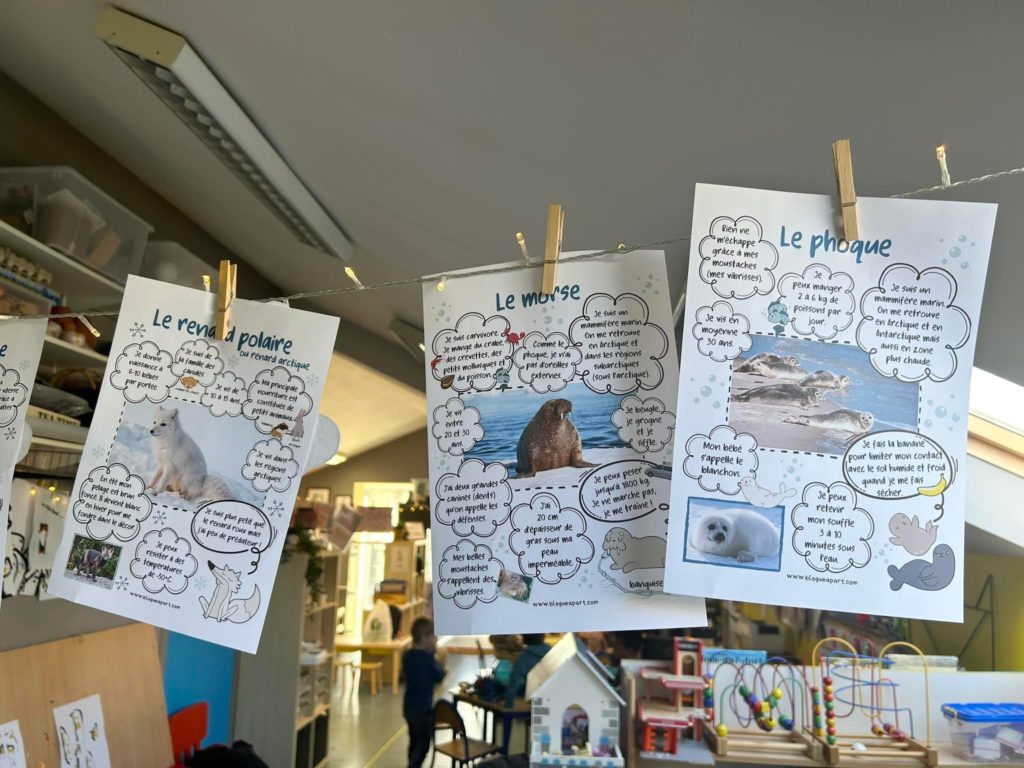 Le renard polaire
ou renard arctique
Je donne
naissance à
8-10 bébés
par portée.
Je suis de
la famille des
canidés.
Je vis de
10 à 15 ans.
Ma principale
nourriture est
constituée de
petits animaux.
Je vis dans
les régions
arctiques.
En été mon
pelage est brun
foncé il devient blanc
en hiver pour me
fondre dans le décor.
Je suis plus petit que
le renard roux mais
j'ai peu de prédateur!
Je peux
résister à des
températures
de -50°C.
www.blogueapart.com
Le morse
Je suis carnivore.
Je mange du crabe,
des crevettes, des
petits mollusques et
du poisson.
Comme le
phoque, je n'ai
pas d'oreilles
externes.
Je suis un
mammifère marin.
On me retrouve
en Arctique et
dans les régions
subarctiques
(sous l'arctique).
Je vis
entre
20 et 30
ans.
Je beugle,
je grogne
et je
siffle.
J'ai deux grandes
canines (dents)
qu'on appelle les
défenses.
J'ai
20 cm
d'épaisseur de
gras sous ma
peau
imperméable.
Je peux peser
jusqu'à 1800 kg
Je ne marche pas,
je me traîne!
Mes belles
moustaches
s'appellent des
vibrisses.
banquise
www.blogueapart.com
Le phoque
Rien ne
m'échappe
grâce à mes
moustaches
(mes vibrisses).
Je
peux manger
2 à 6 kg de
poissons par
jour.
Je suis un
mammifère marin.
On me retrouve
en Arctique et en
Antarctique mais
aussi en zone
plus chaude.
Je vis en
moyenne
30 ans.
Mon bébé
s'appelle le
blanchon.
Je fais la banane
pour limiter mon contact
avec le sol humide et froid
quand je me fais
sécher.
Je peux
retenir
mon souffle
3 à 10
minutes sous
l'eau.
www.blogueapart.com